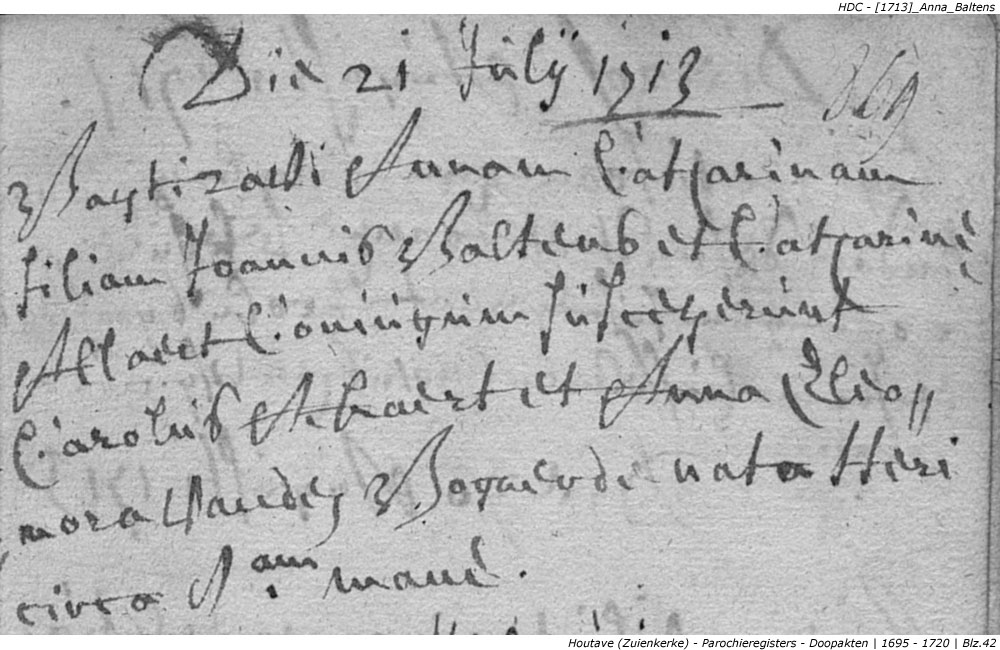 HDC - [1713]_Anna_Baltens
Die 21 Julij 1713
369
Baptizavi Annam Catharinam
filiam Joannis Baltens et Catharinę
Allaert Coniugum susceperunt
Carolus Allaert et Anna Eleo„
nora Vanden Bogaerde nata Heri
circa 8am mane.
Houtave (Zuienkerke) - Parochieregisters - Doopakten | 1695 - 1720 | Blz.42